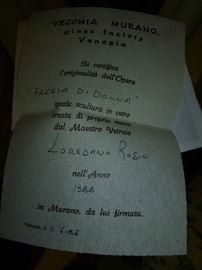 "VECCHIA MURANO"
Glass factory
Venezia
Si certifica
l'originalità dell'Opera
"FACCIA DI DONNA"
quale scultura in vetro
creata di propria mano
dal Maestro Vetraio
LOREDANO ROSIN
nell'Anno
1988
in Murano, da lui firmata.